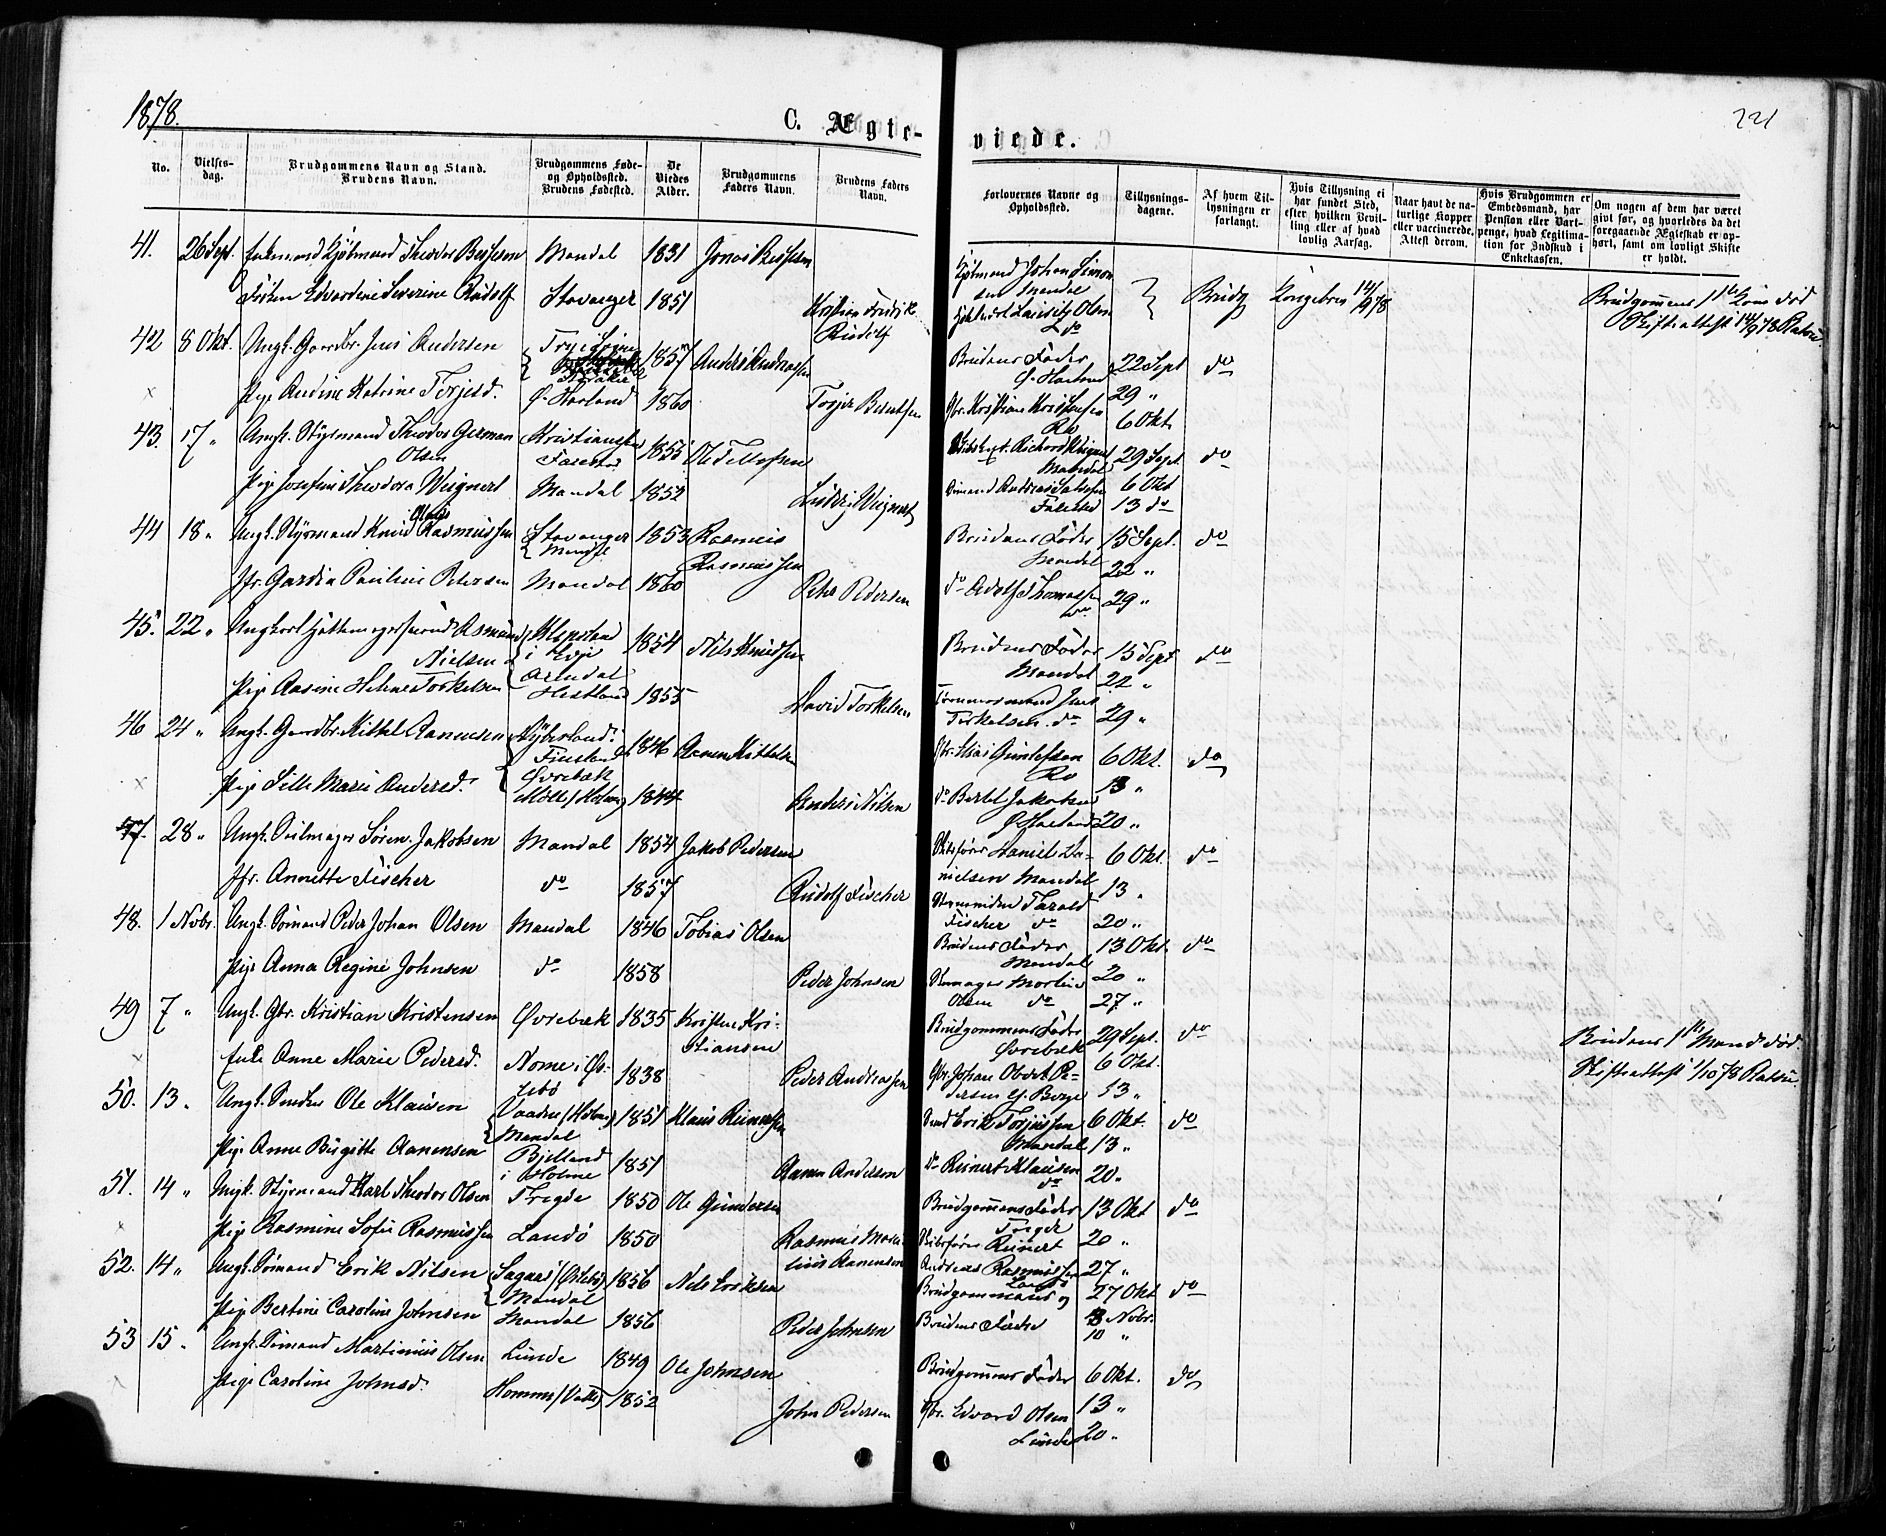 1878.
C. Ægte-
viede.
221
No.
Vielses-
dag.
Brudgommens Navn og Stand.
Brudens Navn.
Brudgommens Føde-
og Opholdsted.
Brudens Fødested.
De
Viedes
Alder.
Brudgommens
Faders Navn.
Brudens Faders
Navn.
Forlovernes Navne og
Opholdsted.
Tillysnings-
dagene.
Af hvem Til-
lysningen er
forlangt.
Hvis Tillysning ei
har fundet Sted,
efter hvilken Bevil-
ling eller af hvad
lovlig Aarsag.
Naar havt de na-
turlige Kopper
eller vaccinerede.
Attest derom.
Hvis Brudgommen er
Embedsmand, har
Pension eller Vart-
penge, hvad Legitima-
tion for Indskud i
Enkekassen.
Om nogen af dem har været
givt før, og hvorledes da det
foregaaende Ægteskab er op-
hørt, samt om lovligt Skifte
er holdt.
41. 26 Sept. Enkemand Kjøbmand Theodor Mandal 1831 Jonas
Kjøbmand Johan Simon
sen Mandal
Frøken Edvardine Severine Rudolf Stavanger 1851 Kristian Fredrik
Rudolf
Lauritz Olsen
do
Brudg Kongebrev 12/9 78
Brudgommens 1ste Kone død
Skifteattest 14/9 78
42 8 Okt. Ungk. Gaardbr. Jens Andersen 1857 Anders Andreassen
Brudens Fader
Ø. Harland 22 Sept do
Pige Andine Katrine Torjesd. Ø. Harland 1860 Torjer Berntsen
Gbr. Kristian Kristensen
Ro
29 "
6 Okt.
43. 17 " Ungk. Styrmand Theodor German
Olsen
Kristianssand
Farestad 1855 Ole Tellefsen
Richard Wignert
Mandal 29 Sept do
Pige Josefine Theodora Wignert Mandal 1852 Ludvig Wignert
Sømand Andreas Salvesen
Farestad
6 Okt
13 do
44 18 " Ungk. Styrmand Knud Rasmussen Stavanger
Mandal 1853 Rasmus
Rasmussen
Brudens Fader
Mandal 15 Sept. do
22 "
Jfr. Gardia Pauline Petersen Mandal 1860 Peter Pedersen
do Adolf Thomassen
do 29 "
45. 22 " Ungkarl Asmund
Nielsen
Klepsland
i Evje
Arendal 1854 Nils Knudsen
Brudens Fader
Mandal 15 Sept do
22 "
Pige Aasine Helene Torkelsen 1855 David Torkelsen
Tømmermand Jens
Torkelsen do 29 "
46 24 " Ungk. Gaardbr. Kittel Aanensen
Finsland
Øvrebæk 1846 Aanen Kittelsen
Gbr. Elias Gunlefsen
Ro 6 Okt. do
13 "
Pige Sille Marie Andersd. 1844 Anders Nilsen
do Bertel Jakobsen
Ø Harland 20 "
47. 28 " Ungk. Seilmager Søren Jakobsen Mandal 1854 Jakob Pedersen
Skibsfører Daniel Da-
nielsen Mandal 6 Okt. do
13 "
Jfr. Annette Fischer do 1857 Rudolf Fischer
Tarald
Fischer do 20 "
48. 1 Novbr. Ungk. Sømand Peder Johan Olsen Mandal 1846 Tobias Olsen
Brudens Fader
Mandal 13 Okt. do
20 "
Pige Anna Regine Johnsen do 1858 Peder Johnsen
Skomager Martin
Olsen do 27 "
49 7 " Ungk. Gbr. Kristian Kristensen Øvrebæk 1835 Kristen Kri-
stiansen
Brudgommens Fader
Øvrebæk 29 Sept. do
6 Okt.
Brudens 1ste Mand død.
Skifteattest 1/10 78
Enke Anne Marie Pedersd. Nome i Øs-
lebø 1838 Peder Andreassen
Gbr. Johan Obert Pe-
dersen 13 "
50. 13 " Ungk. Ole Klausen
Mandal 1851 Klaus Reinertsen
Erik Torjussen
Mandal 6 Okt. do
13 "
Pige Anne Birgitte Aanensen Bjelland
i Holme 1851 Aanen Andersen
do Reinert Klausen
do 20 "
51. 14 " Ungk. Styrmand Karl Theodor Olsen Tregde 1850 Ole Gundersen
Brudgommens Fader
Tregde 13 Okt do
Pige Rasmine Sofie Rasmussen Landø 1850 Rasmus Mare-
lius Aanensen
Skibsfører Reinert
Andreas Rasmussen
Landø
20 "
27 "
52. 14 " Ungk. Sømand Erik Nilsen
Mandal 1856 Nils Eriksen
Brudgommens og
Brudens Fædre
27 Okt do
3 Novbr.
10 "
Pige Bertine Caroline Johnsen Mandal 1856 Peder Johnsen
53 15 " Ungk. Sømand Martinius Olsen Lunde 1849 Ole Johnsen
Brudgommens Fader 6 Okt. do
13 "
Pige Caroline Johnsd. 1852 John Pedersen
Gbr. Edvard Olsen
Lunde 20 "